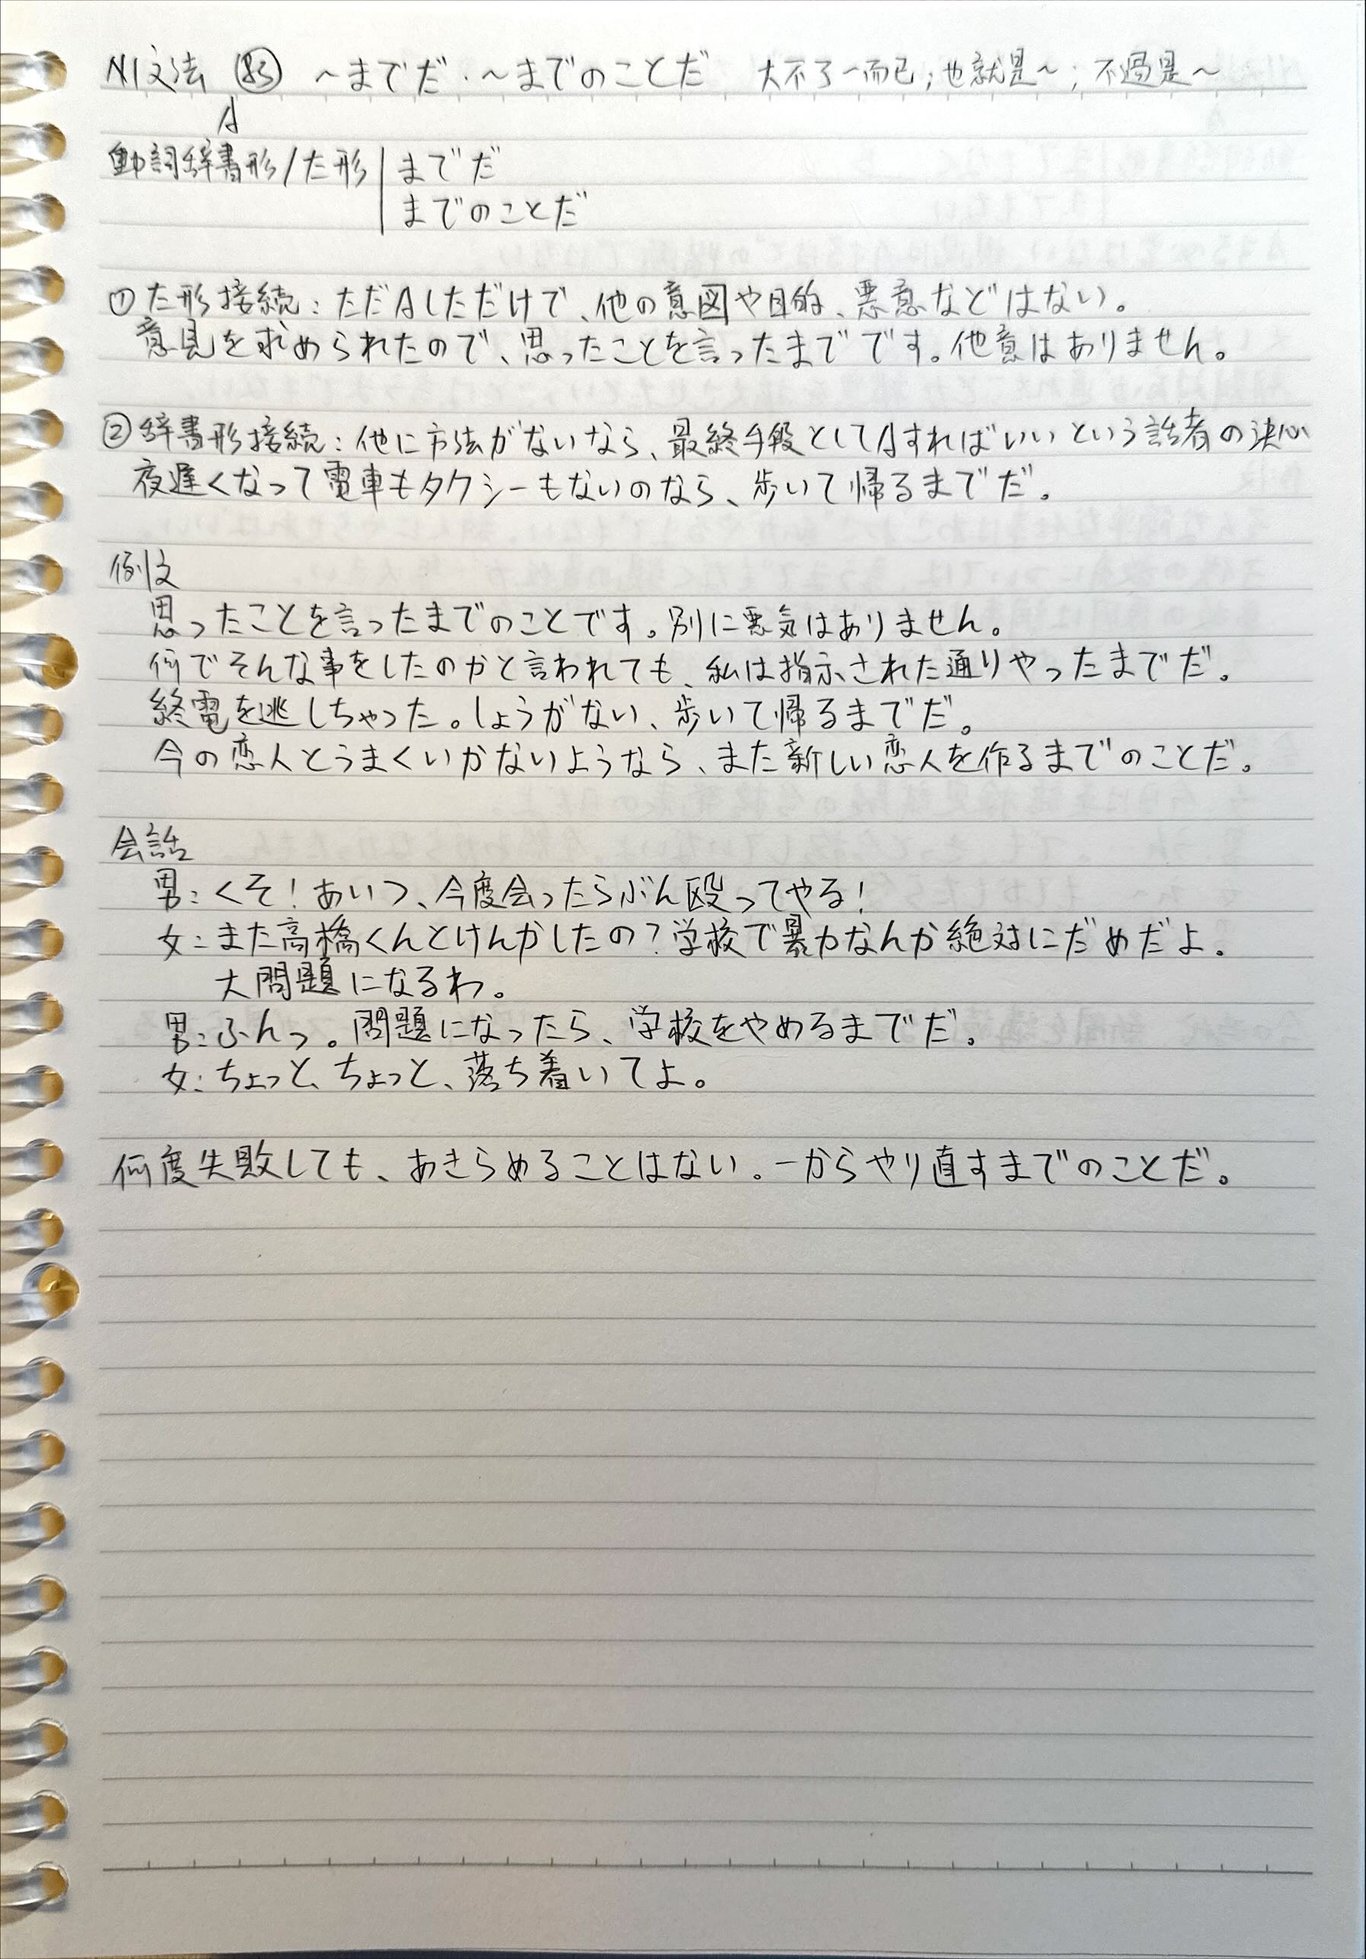 N1文法 183 ～までだ・～までのことだ 大不了～而已；也就是～；不過是～
A
動詞辞書形/た形 までだ
までのことだ
①た形接続：ただAしただけで、他の意図や目的、悪意などはない。
意見を求められたので、思ったことを言ったまでです。他意はありません。
②辞書形接続：他に方法がないなら、最終手段としてAすればいいという話者の決心
夜遅くなって電車もタクシーもないのなら、歩いて帰るまでだ。
例文
思ったことを言ったまでのことです。別に悪気はありません。
何でそんな事をしたのかと言われても、私は指示された通りやったまでだ。
終電を逃しちゃった。しょうがない、歩いて帰るまでだ。
今の恋人とうまくいかないようなら、また新しい恋人を作るまでのことだ。
会話
男：くそ！あいつ、今度会ったらぶん殴ってやる！
女：また高橋くんとけんかしたの？学校で暴力なんか絶対にだめだよ。
大問題になるわ。
男：ふんっ。問題になったら、学校をやめるまでだ。
女：ちょっと、ちょっと、落ち着いてよ。
何度失敗しても、あきらめることはない。一からやり直すまでのことだ。